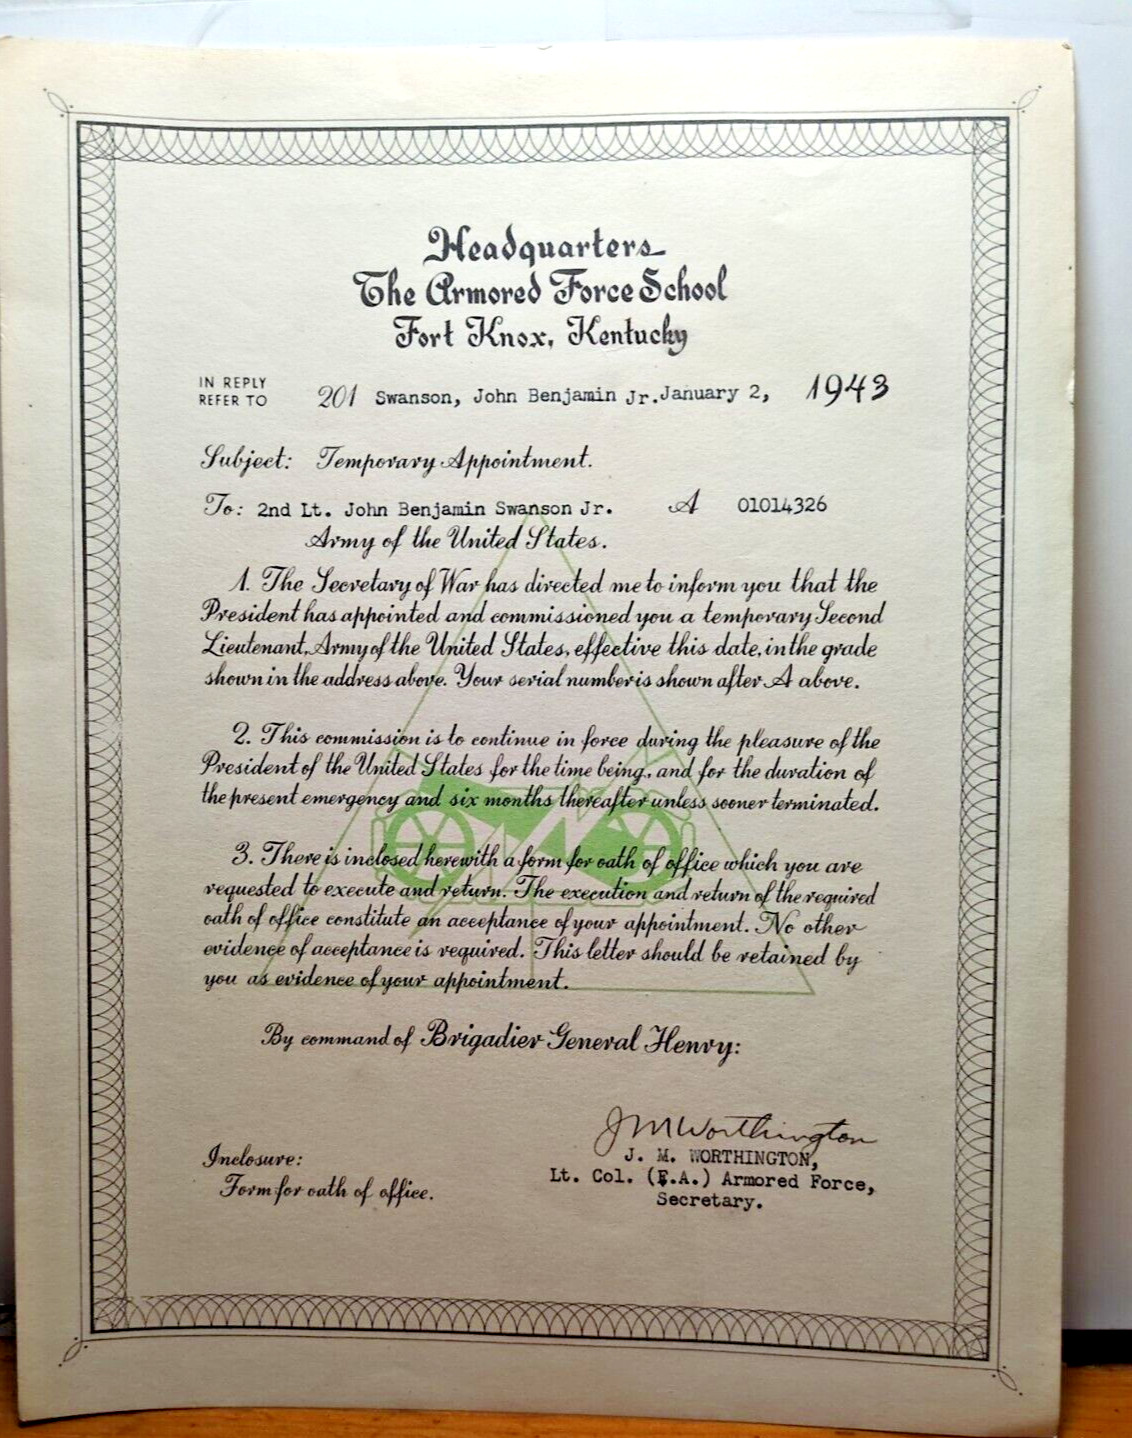 Headquarters
The Armored Force School
Fort Knox, Kentucky
IN REPLY
REFER TO 201 Swanson, John Benjamin Jr. January 2, 1943
Subject: Temporary Appointment.
To: 2nd Lt. John Benjamin Swanson Jr. A 01014326
Army of the United States.
1. The Secretary of War has directed me to inform you that the
President has appointed and commissioned you a temporary Second
Lieutenant, Army of the United States, effective this date, in the grade
shown in the address above. Your serial number is shown after A above.
2. This commission is to continue in force during the pleasure of the
President of the United States for the time being, and for the duration of
the present emergency and six months thereafter unless sooner terminated.
3. There is inclosed herewith a form for oath of office which you are
requested to execute and return. The execution and return of the required
oath of office constitute an acceptance of your appointment. No other
evidence of acceptance is required. This letter should be retained by
you as evidence of your appointment.
By command of Brigadier General Henry:
J M Worthington
J. M. WORTHINGTON,
Lt. Col. (F.A.) Armored Force,
Secretary.
Inclosure:
Form for oath of office.